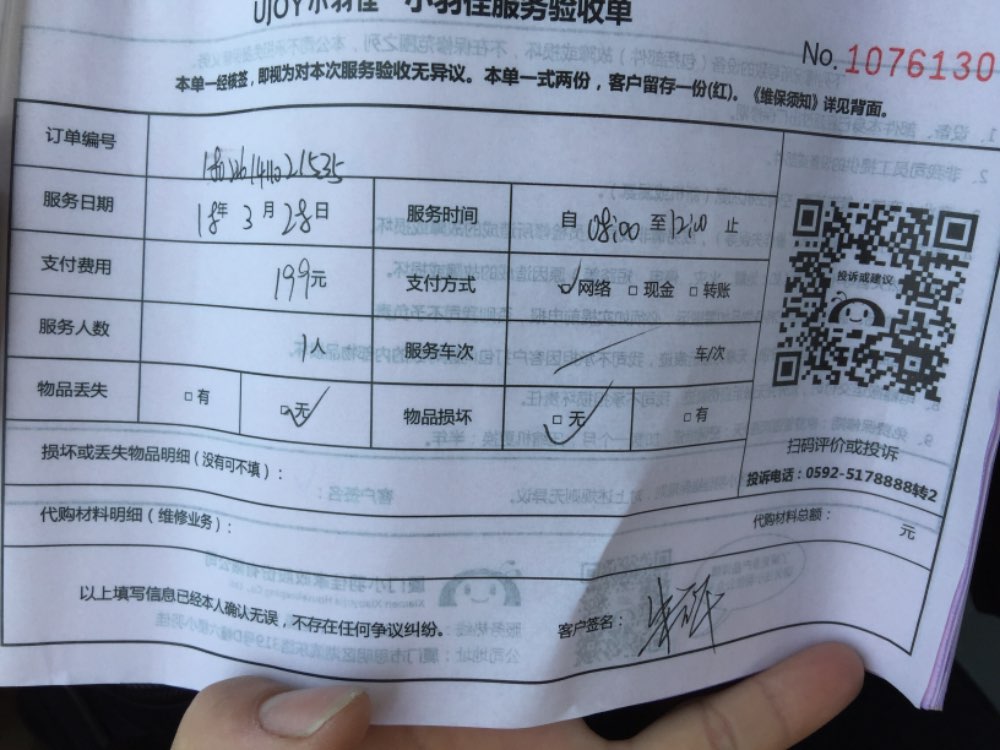 UJOY小羽佳 小羽佳服务验收单
No. 1076130
本单一经核签，即视为对本次服务验收无异议。本单一式两份，客户留存一份(红)。《维保须知》详见背面。
订单编号
服务日期 18年 3月 28日 服务时间 自 08:00 至 12:00 止
支付费用 199元 支付方式 网络 □现金 □转账
服务人数 1人 服务车次 车/次
物品丢失 □有 □无 物品损坏 □无 □有
投诉或建议
扫码评价或投诉
投诉电话：0592-5178888转2
损坏或丢失物品明细（没有可不填）：
代购材料明细（维修业务）： 代购材料总额： 元
以上填写信息已经本人确认无误，不存在任何争议纠纷。 客户签名：